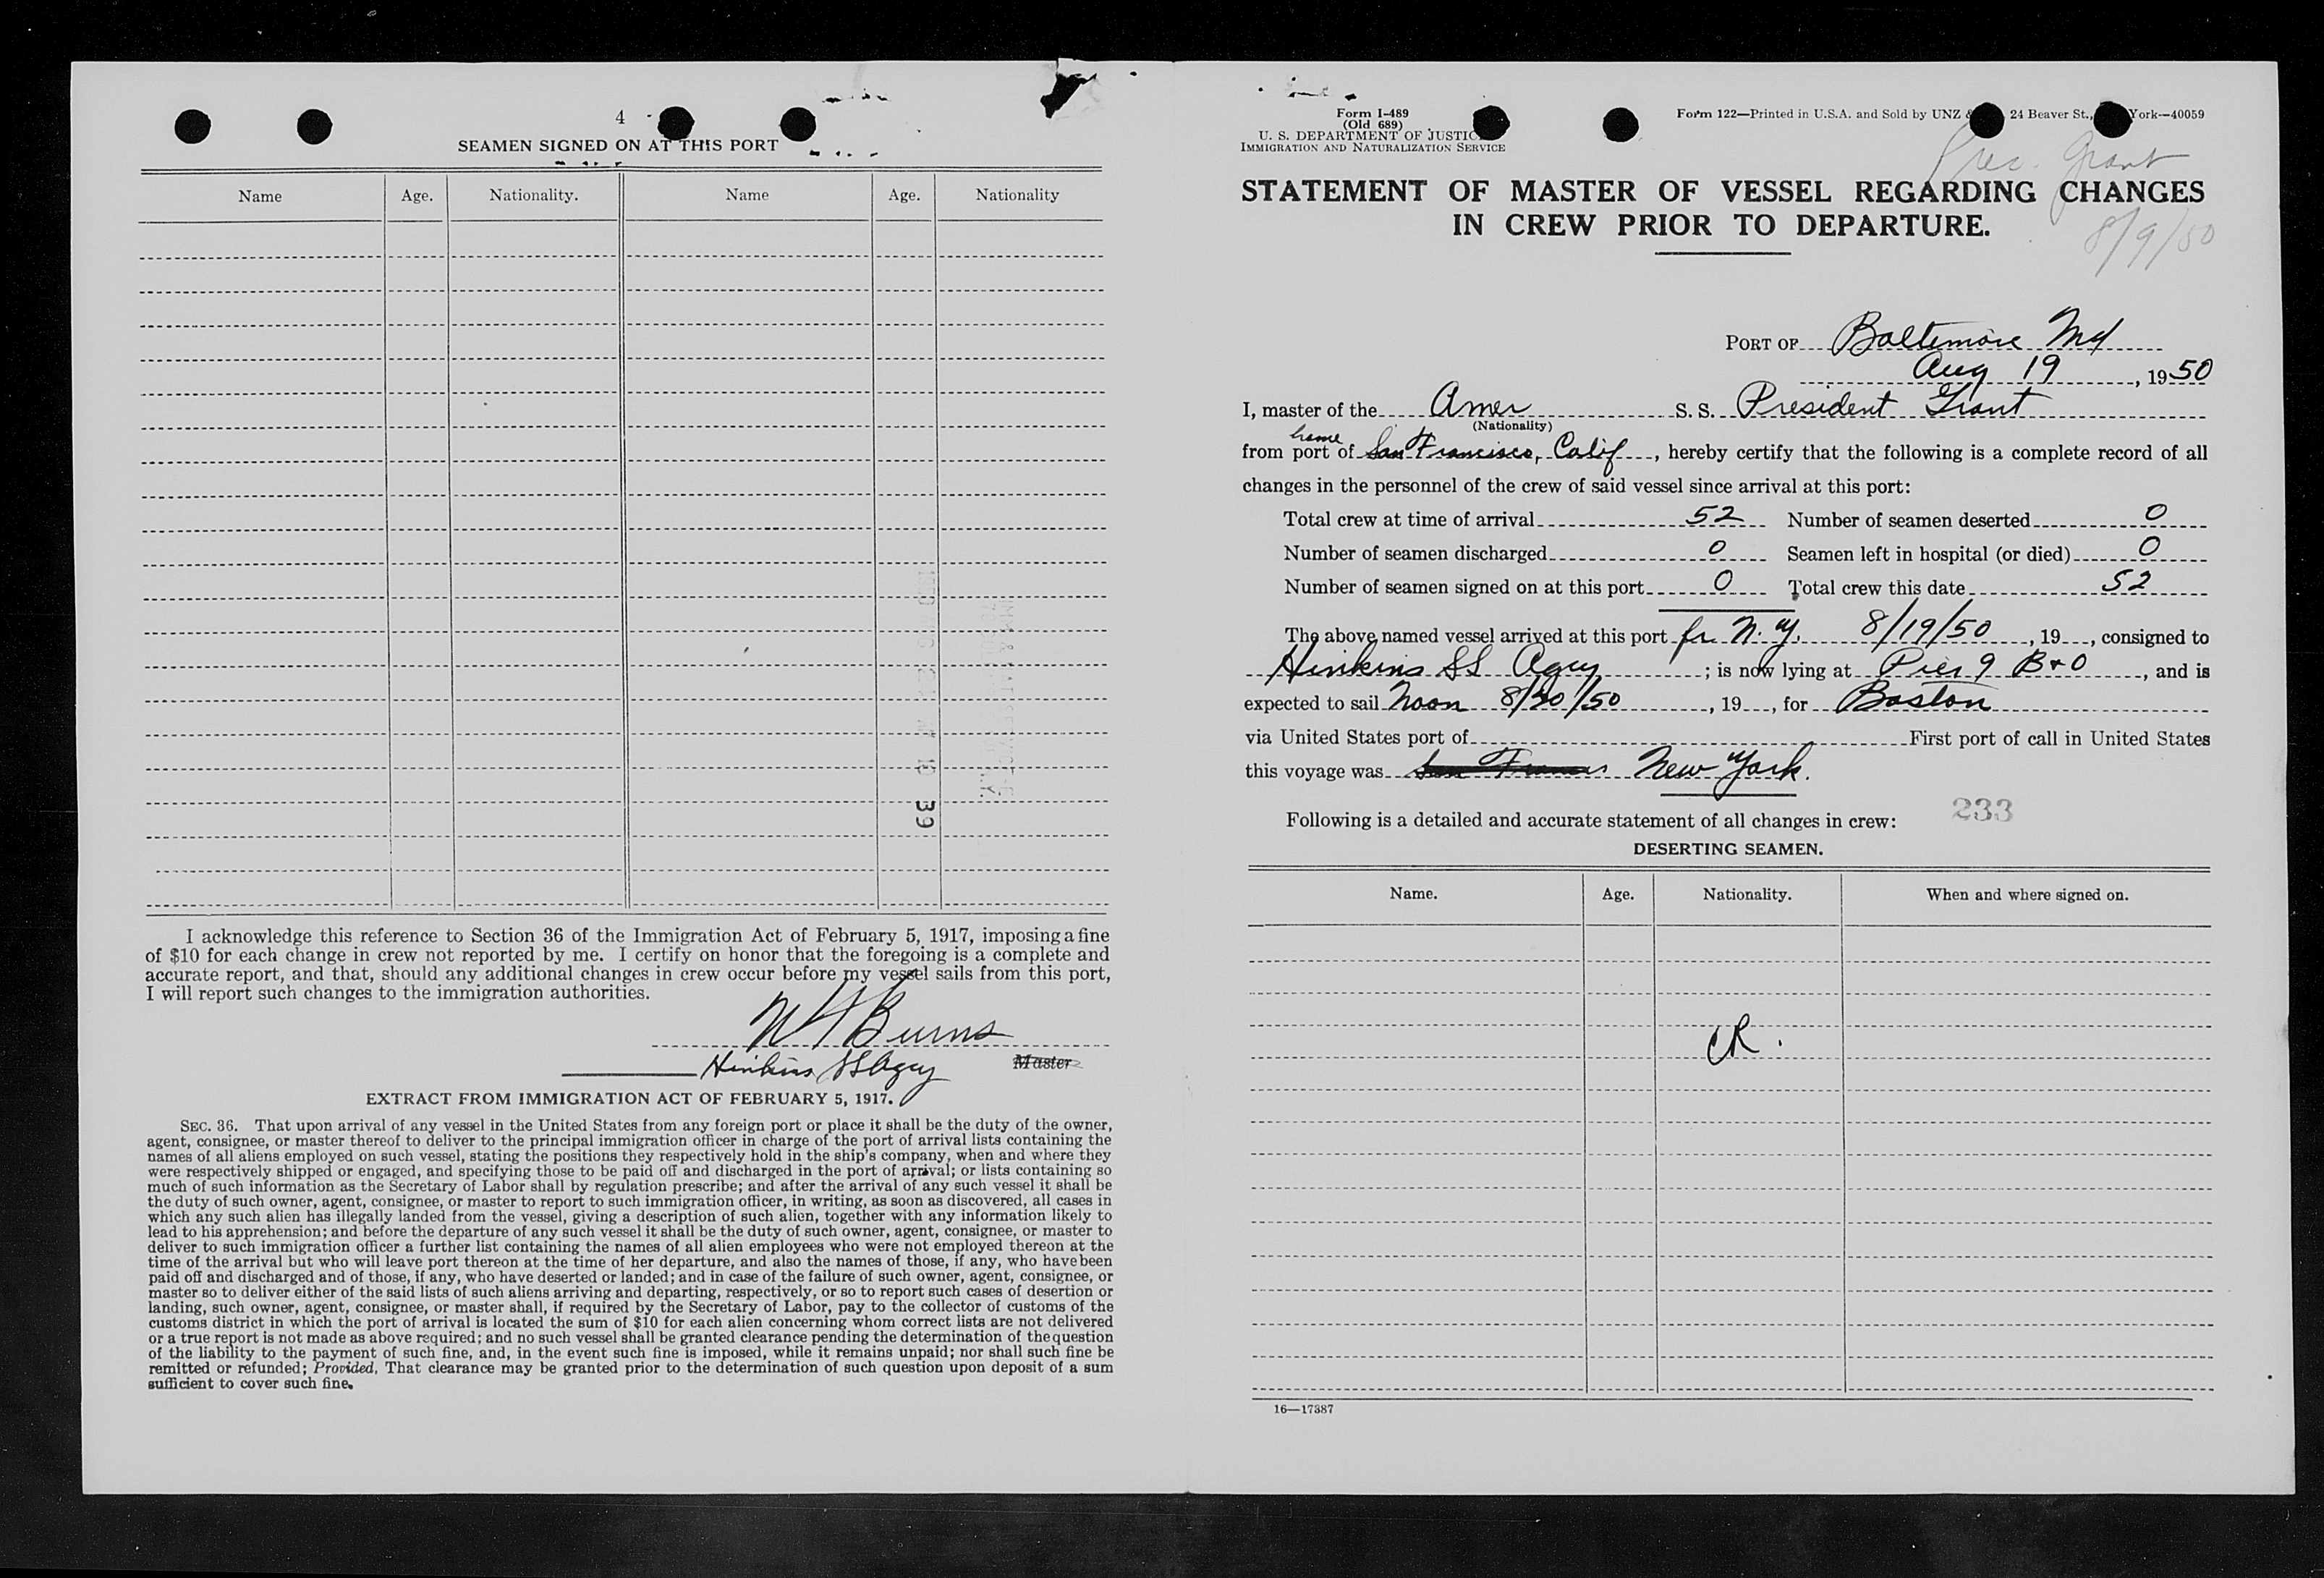 4
SEAMEN SIGNED ON AT THIS PORT
Name Age. Nationality. Name Age. Nationality
39
I acknowledge this reference to Section 36 of the Immigration Act of February 5, 1917, imposing a fine
of $10 for each change in crew not reported by me. I certify on honor that the foregoing is a complete and
accurate report, and that, should any additional changes in crew occur before my vessel sails from this port,
I will report such changes to the immigration authorities.
Burns
Hinkins SS Agcy Master
EXTRACT FROM IMMIGRATION ACT OF FEBRUARY 5, 1917.
SEC. 36. That upon arrival of any vessel in the United States from any foreign port or place it shall be the duty of the owner,
agent, consignee, or master thereof to deliver to the principal immigration officer in charge of the port of arrival lists containing the
names of all aliens employed on such vessel, stating the positions they respectively hold in the ship's company, when and where they
were respectively shipped or engaged, and specifying those to be paid off and discharged in the port of arrival; or lists containing so
much of such information as the Secretary of Labor shall by regulation prescribe; and after the arrival of any such vessel it shall be
the duty of such owner, agent, consignee, or master to report to such immigration officer, in writing, as soon as discovered, all cases in
which any such alien has illegally landed from the vessel, giving a description of such alien, together with any information likely to
lead to his apprehension; and before the departure of any such vessel it shall be the duty of such owner, agent, consignee, or master to
deliver to such immigration officer a further list containing the names of all alien employees who were not employed thereon at the
time of the arrival but who will leave port thereon at the time of her departure, and also the names of those, if any, who have been
paid off and discharged and of those, if any, who have deserted or landed; and in case of the failure of such owner, agent, consignee, or
master so to deliver either of the said lists of such aliens arriving and departing, respectively, or so to report such cases of desertion or
landing, such owner, agent, consignee, or master shall, if required by the Secretary of Labor, pay to the collector of customs of the
customs district in which the port of arrival is located the sum of $10 for each alien concerning whom correct lists are not delivered
or a true report is not made as above required; and no such vessel shall be granted clearance pending the determination of the question
of the liability to the payment of such fine, and, in the event such fine is imposed, while it remains unpaid; nor shall such fine be
remitted or refunded; Provided, That clearance may be granted prior to the determination of such question upon deposit of a sum
sufficient to cover such fine.
Form I-489
(Old 689)
U. S. DEPARTMENT OF JUSTIC
IMMIGRATION AND NATURALIZATION SERVICE
Form 122—Printed in U.S.A. and Sold by UNZ & 24 Beaver St., York—40059
Pres. Grant
8/9/50
STATEMENT OF MASTER OF VESSEL REGARDING CHANGES
IN CREW PRIOR TO DEPARTURE.
PORT OF Baltimore Md
Aug 19, 1950
I, master of the Amer S. S. President Grant
(Nationality)
home
from port of San Francisco, Calif, hereby certify that the following is a complete record of all
changes in the personnel of the crew of said vessel since arrival at this port:
Total crew at time of arrival 52 Number of seamen deserted 0
Number of seamen discharged 0 Seamen left in hospital (or died) 0
Number of seamen signed on at this port 0 Total crew this date 52
The above named vessel arrived at this port fr. N. Y. 8/19/50, 19, consigned to
Hinkins SS Agcy; is now lying at Pier 9 B+O, and is
expected to sail Noon 8/20/50, 19, for Boston
via United States port of First port of call in United States
this voyage was New York.
Following is a detailed and accurate statement of all changes in crew: 233
DESERTING SEAMEN.
Name. Age. Nationality. When and where signed on.
CR.
16—17387